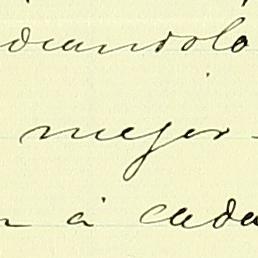 deandolo
mejor
n á cada